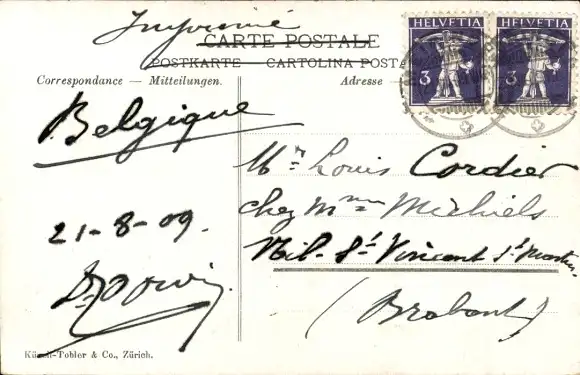 Imprimé
CARTE POSTALE
POSTKARTE — CARTOLINA POSTA
Correspondance — Mitteilungen.
Adresse
HELVETIA
3
HELVETIA
3
Belgique
Mr Louis Cordier
chez Mme Michiels
Nil-St Vincent St Martin
(Brabant)
21-8-09.
Künzli-Tobler & Co., Zürich.